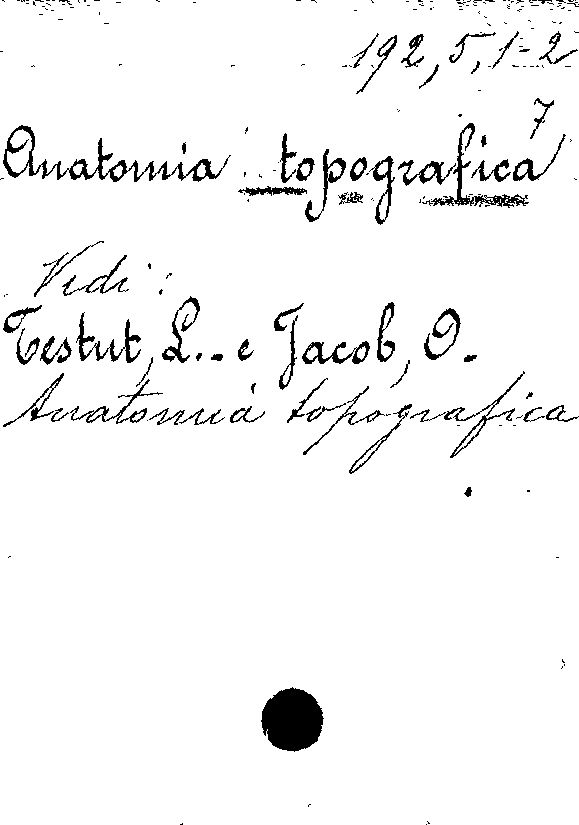 192, 5, 1-2
7
Anatomia topografica
Vedi:
Testut, L. - e Jacob, O. -
Anatomia topografica